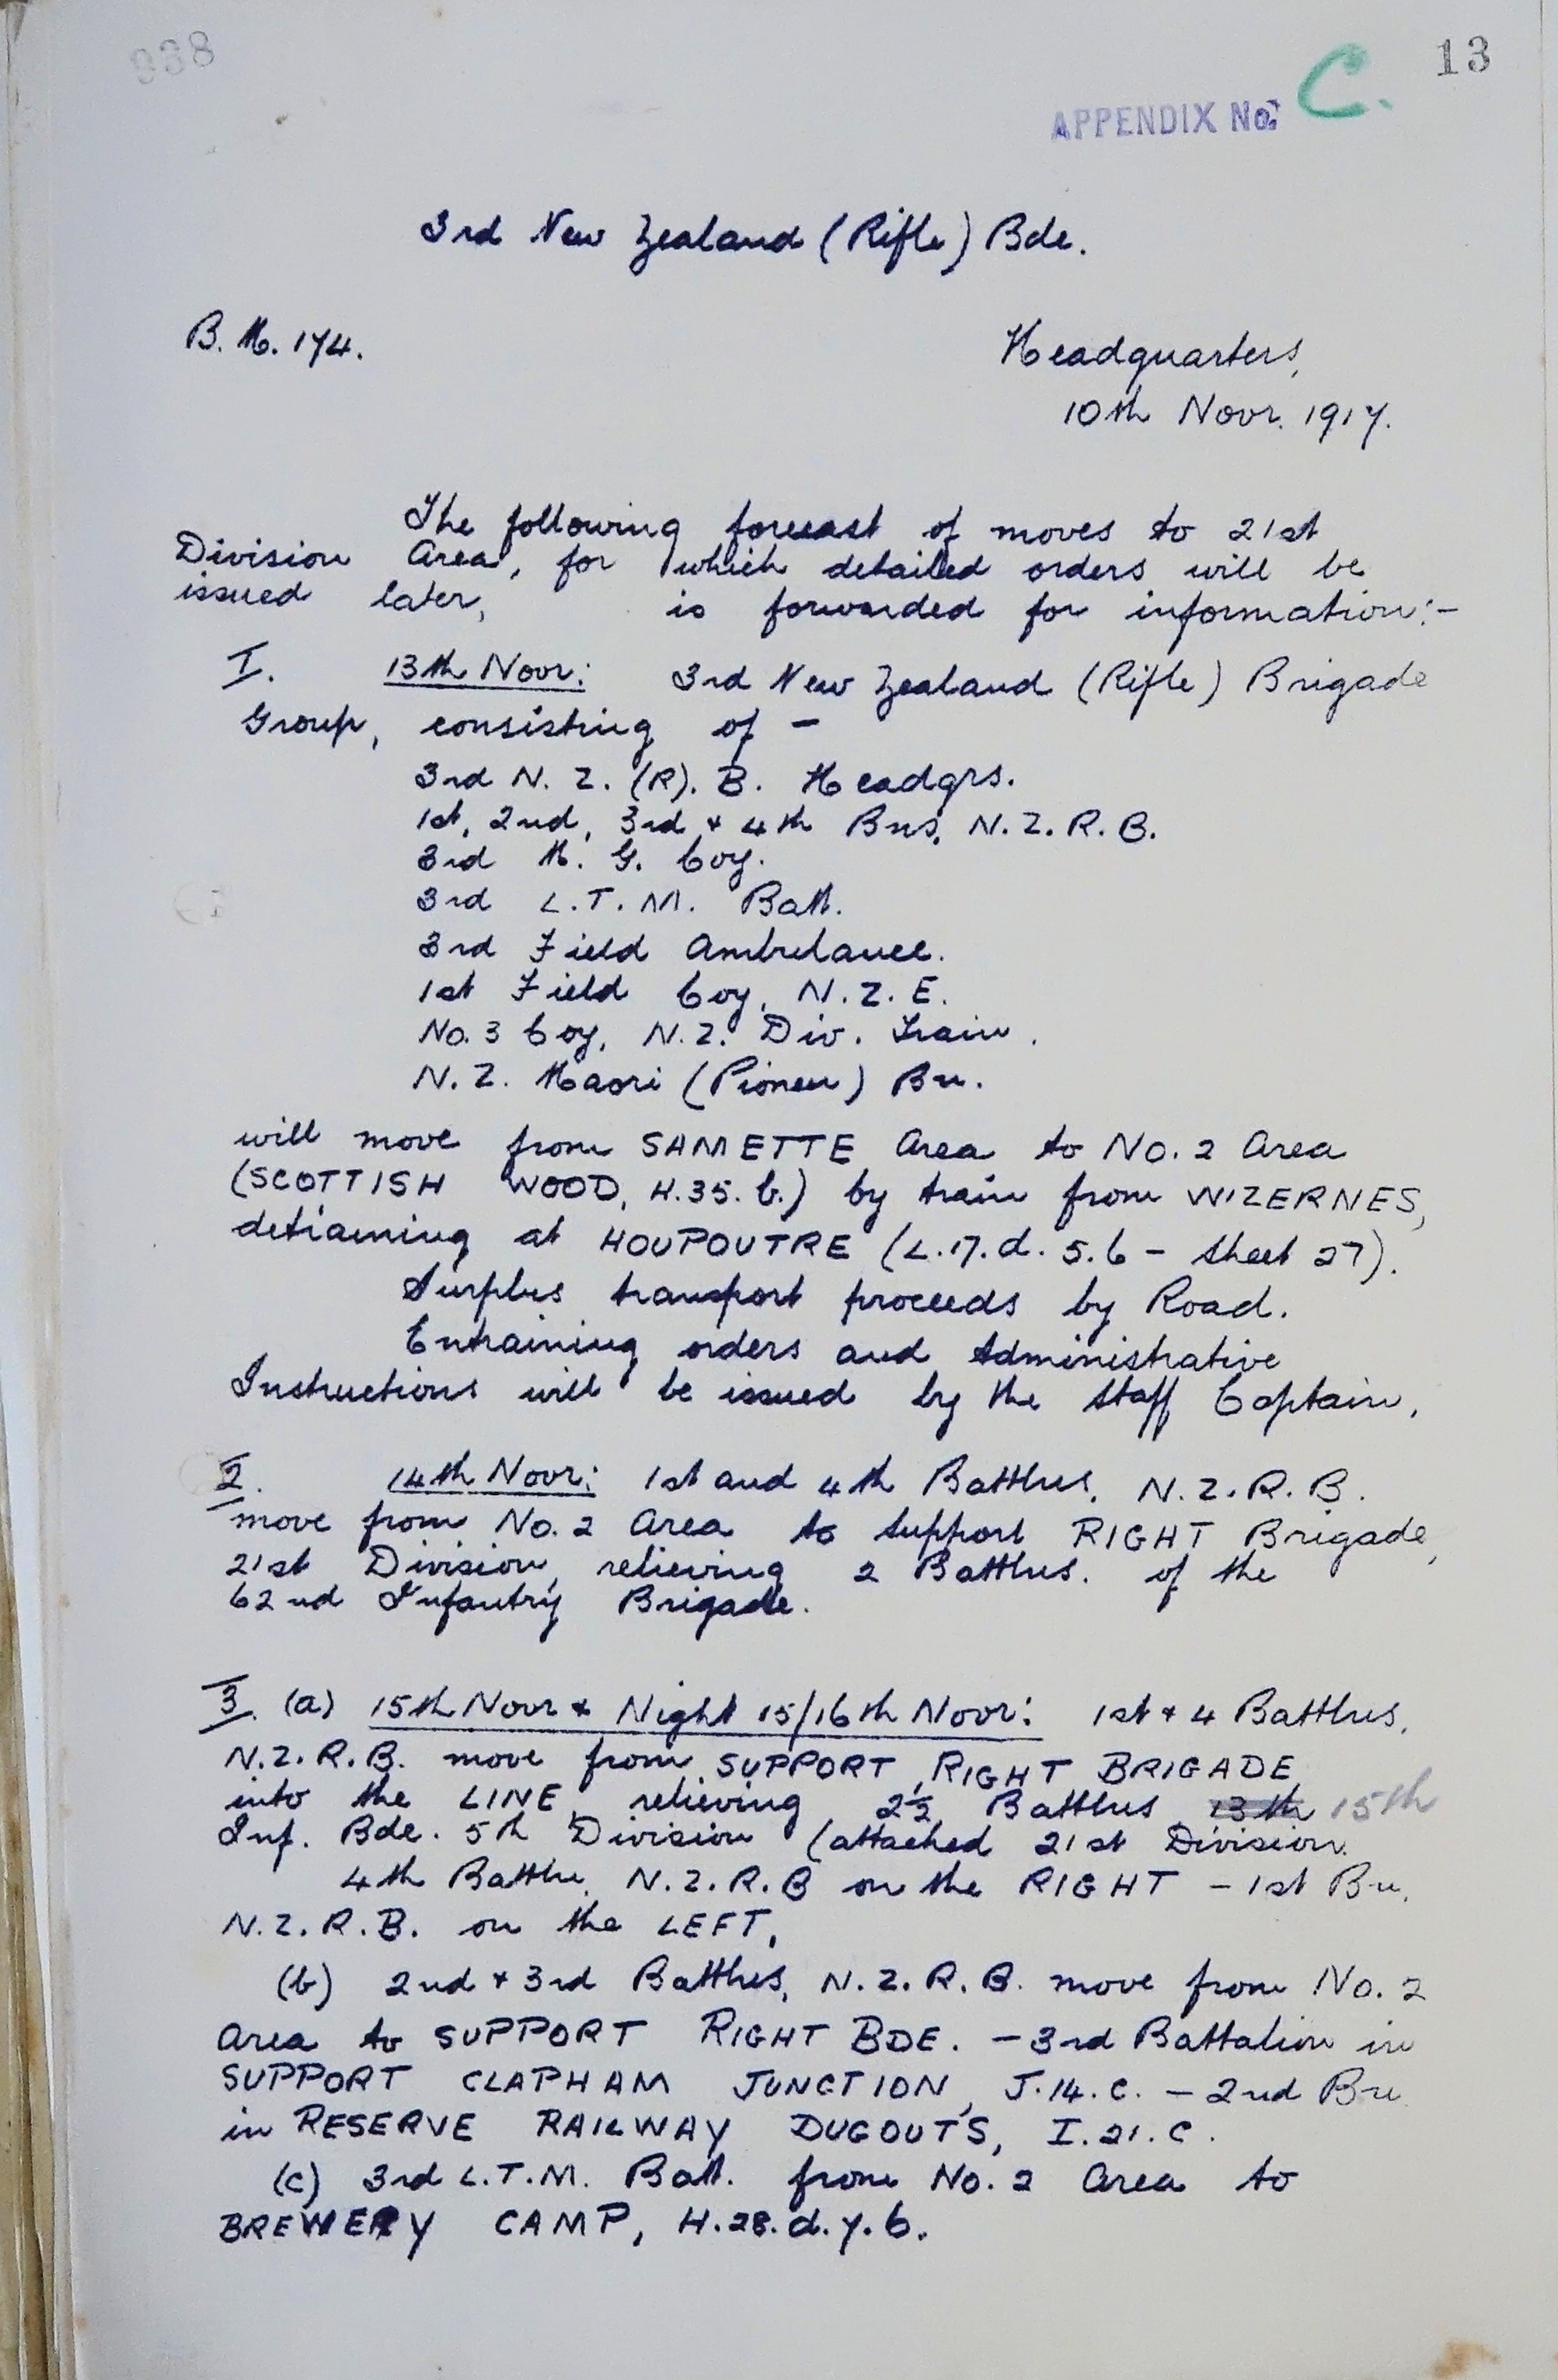 938
13
APPENDIX No. C.
3rd New Zealand (Rifle) Bde.
B.M. 174.
Headquarters,
10th Novr. 1917.
The following forecast of moves to 21st
Division Area, for which detailed orders will be
issued later, is forwarded for information:-
I. 13th Novr: 3rd New Zealand (Rifle) Brigade
Group, consisting of -
3rd N. Z. (R). B. Headqrs.
1st, 2nd, 3rd & 4th Bns, N.Z.R.B.
3rd M. G. Coy.
3rd L.T.M. Batt.
3rd Field Ambulance.
1st Field Coy, N.Z.E.
No. 3 Coy, N.Z. Div. Train.
N.Z. Maori (Pioneer) Bn.
will move from SAMETTE Area to No. 2 Area
(SCOTTISH WOOD, H.35.b.) by train from WIZERNES,
detraining at HOUPOUTRE (L.17.d.5.6 - Sheet 27).
Surplus transport proceeds by Road.
Entraining orders and Administrative
Instructions will be issued by the Staff Captain,
2. 14th Novr: 1st and 4th Battlns, N.Z.R.B.
move from No. 2 Area to Support RIGHT Brigade,
21st Division, relieving 2 Battlns. of the
62nd Infantry Brigade.
3. (a) 15th Novr & Night 15/16th Novr: 1st & 4 Battlns,
N.Z.R.B. move from SUPPORT, RIGHT BRIGADE,
into the LINE, relieving 2½ Battlns 13th 15th
Inf. Bde. 5th Division (attached 21st Division.
4th Battln, N.Z.R.B on the RIGHT - 1st Bn,
N.Z.R.B. on the LEFT,
(b) 2nd & 3rd Battlns, N.Z.R.B. move from No. 2
Area to SUPPORT RIGHT BDE. - 3rd Battalion in
SUPPORT CLAPHAM JUNCTION, J.14.C. - 2nd Bn
in RESERVE RAILWAY DUGOUTS, I.21.C.
(c) 3rd L.T.M. Batt. from No. 2 Area to
BREWERY CAMP, H.28.d.7.6.